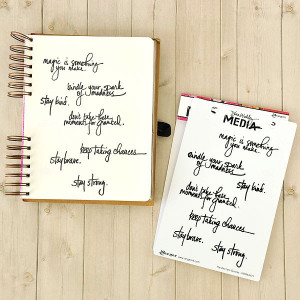 magic is something
you make.
kindle your spark
of madness.
stay kind.
don't take these
moments for granted.
keep taking chances
stay brave.
stay strong.
MEDIA
magic is something
you make.
kindle your spark
of madness.
stay kind.
don't take these
moments for granted.
keep taking chances
stay brave.
stay strong.